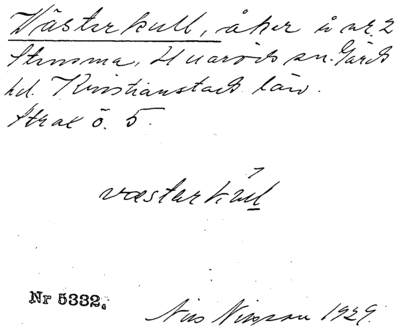 Västerkull, åker å nr. 2
Slumma, Huaröds sn. Gärds
hd. Kristianstads län.
Strax ö. 5.
væstarkul
Nr 5332.
Nils Nilsson 1929.